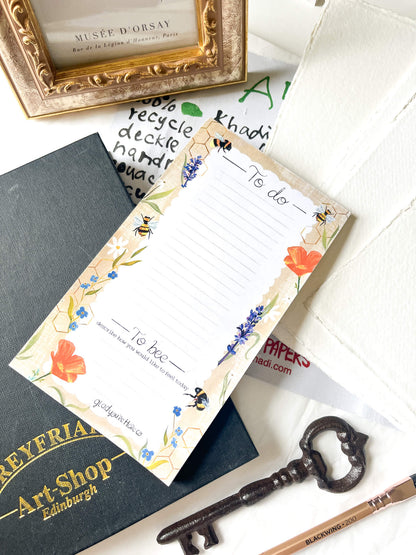 MUSÉE D'ORSAY
Rue de la Légion d'Honneur, Paris
100%
recycle
deckle
handm
Khadi
To do
To bee
describe how you would like to feel today
PAPERS
hadi.com
REYFRIA
Art-Shop
Edinburgh
BLACKWING-200